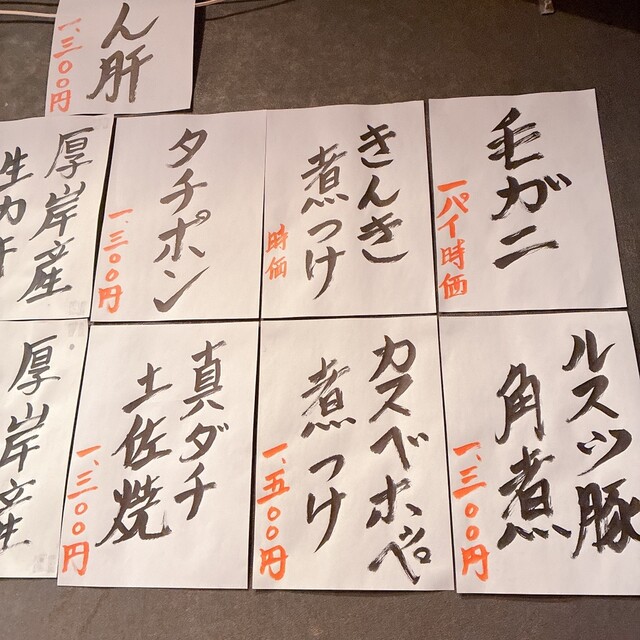 ん肝
一、三〇〇円
毛ガニ
一パイ時価
きんき
煮つけ
時価
タチポン
一、三〇〇円
厚岸産
生カキ
ルスツ豚
角煮
一、三〇〇円
カスベホペ
煮つけ
一、五〇〇円
真ダチ
土佐焼
一、三〇〇円
厚岸産